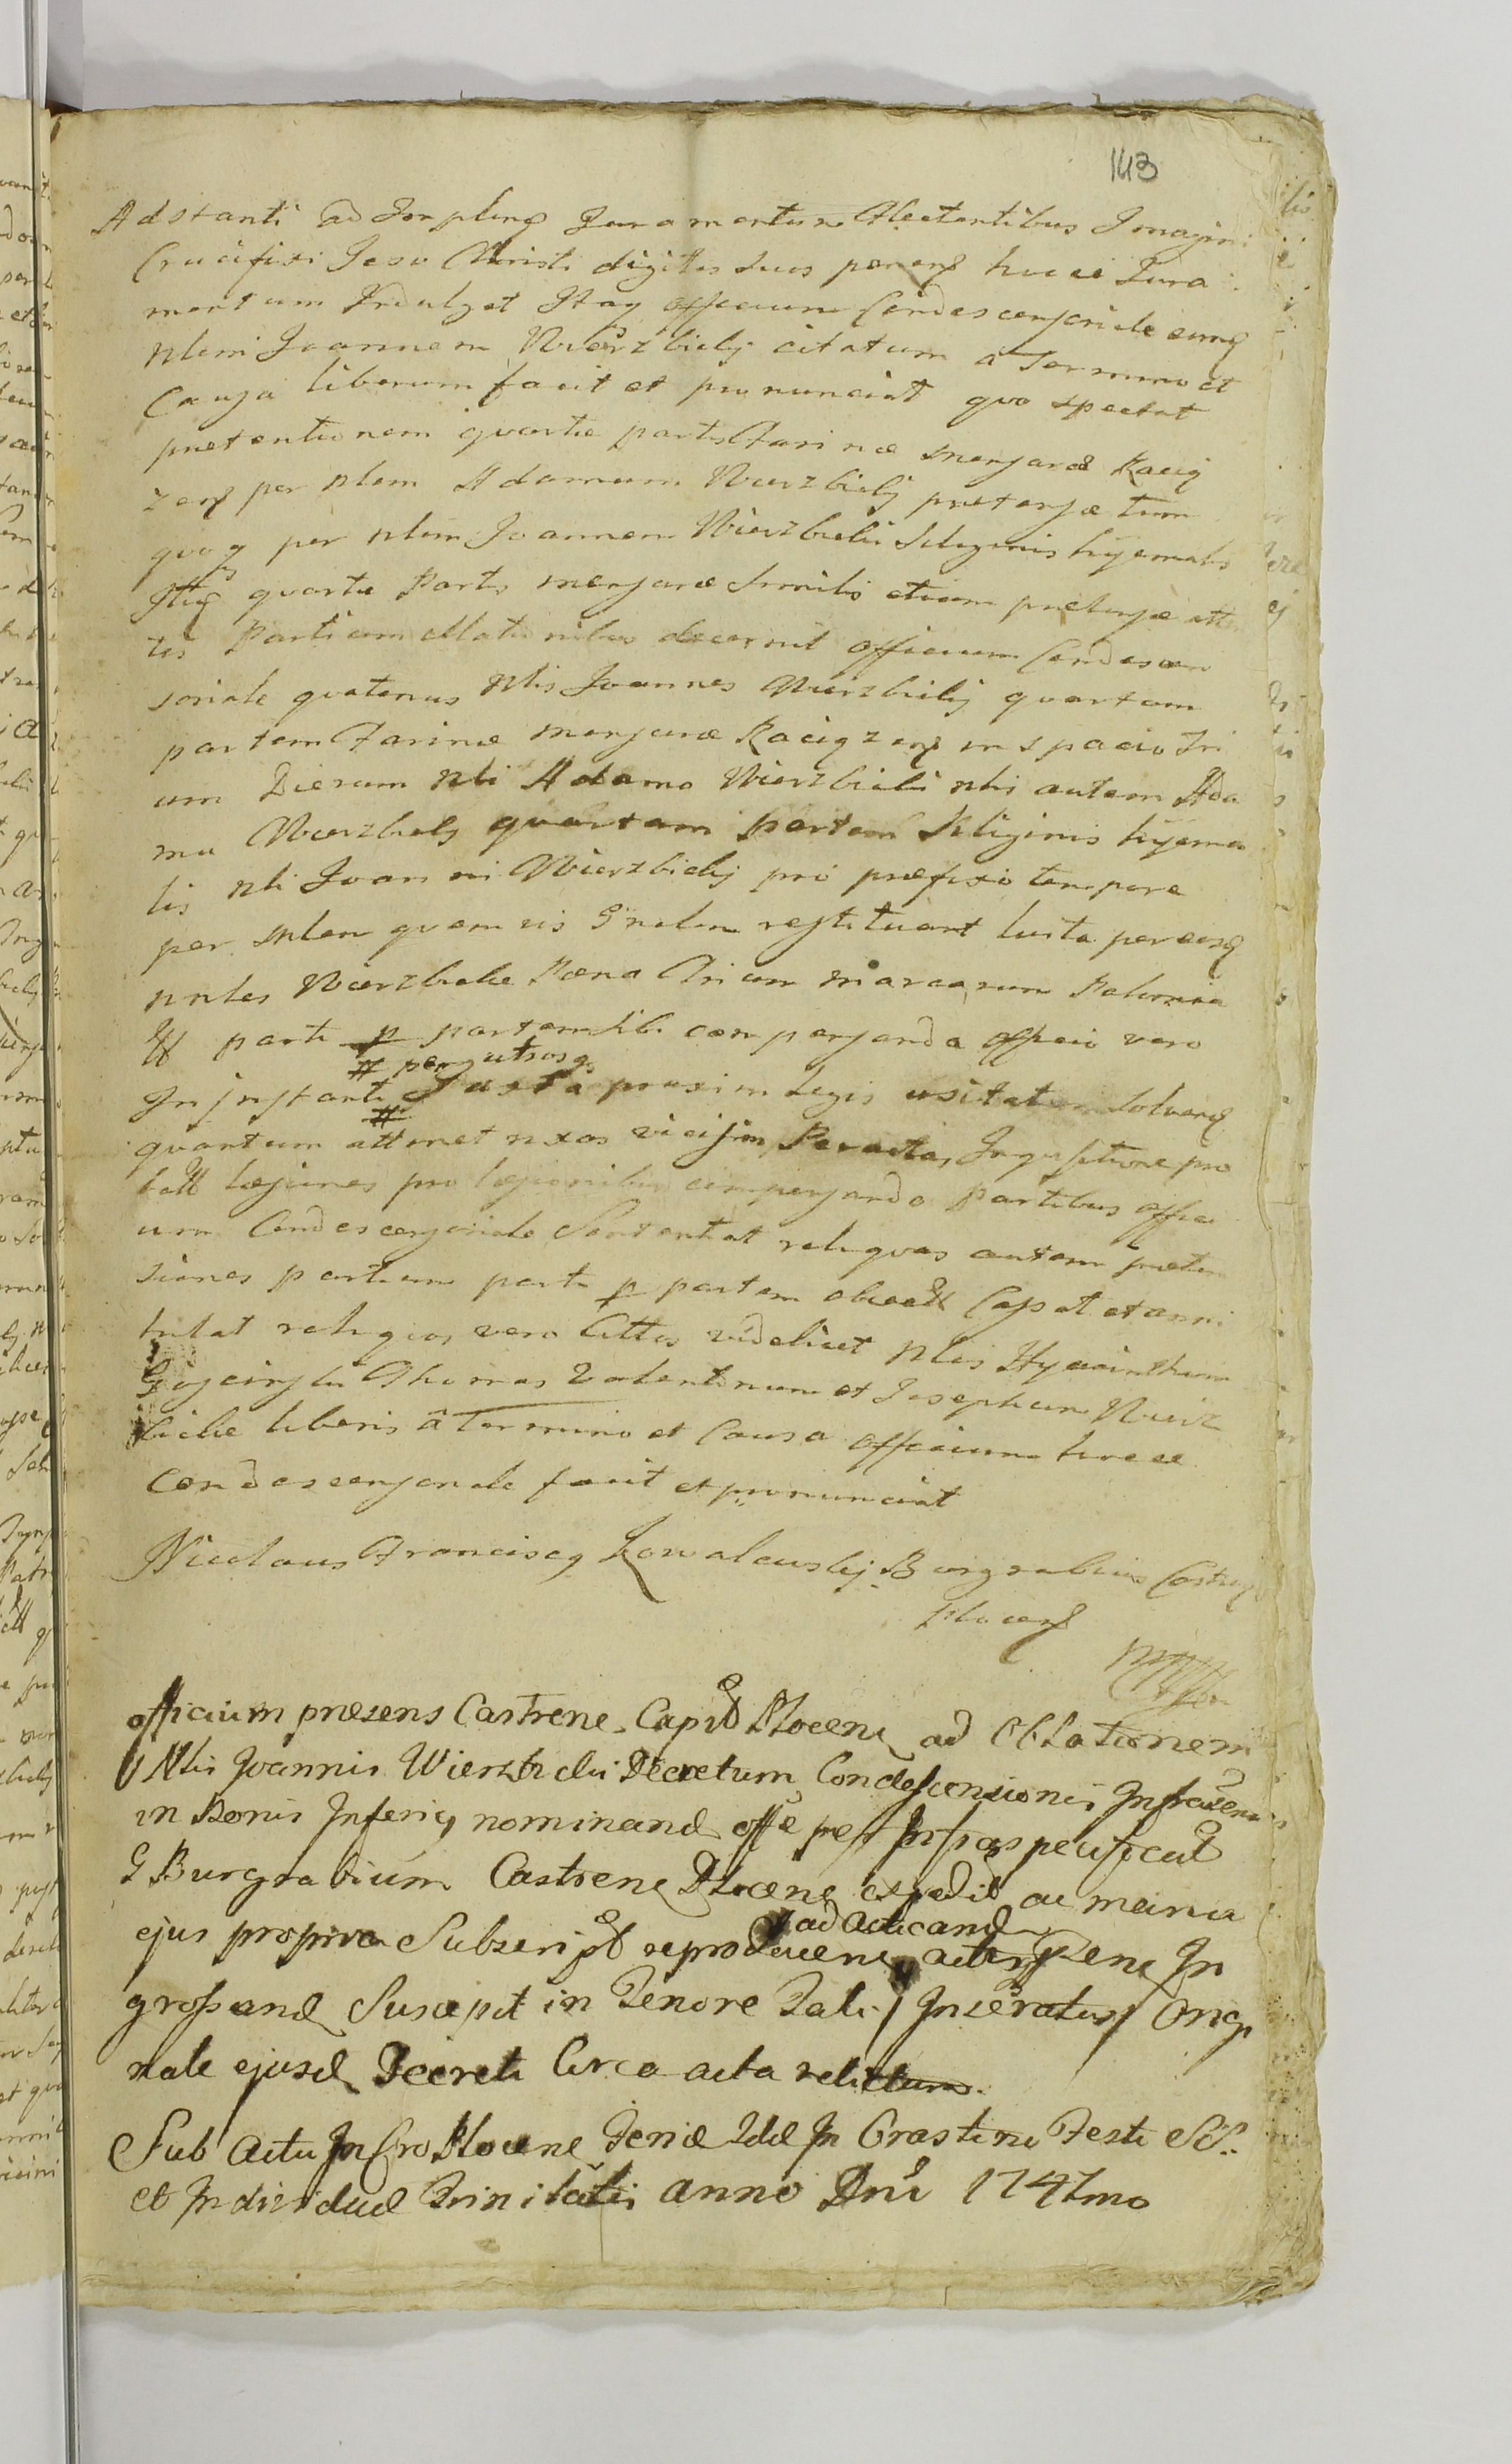 143
Adstanti ad Juramentum flectentibus Imagini
Crucifixi Jesu Christi digitos suos ponens huice Jura
mentum Indulget Itaq officium Condescensoriale eunq
Nlem Joannem Wierzbicki citatum a Termino et
Causa liberum facit et pronunciat quo spectat
pretentionem quartæ partis Farinæ mensuræ Raciq
zens per Nlem Adamum Wierzbickij pretensæ tum
quoq per Nlem Joannem Wierzbicki Siliginis hyemalis
quartæ Partis mensuræ similis etiam pretensæ
tis Partium decernit officium Condescen
soriale quatenus Nlis Joannes Wierzbickij quartam
partem Farinæ mensuræ Raciqzens in spacio Tri
um Dierum Nli Adamo Wierzbicki Nlis autem Ada
mus Wierzbickij quartam partem Siliginis hyema
lis Nli Joanni Wierzbickij pro præfixo tempore
per Nlem quemvis restituant luita per eosq
Nnles Wierzbickie Pæna Trium marcarum Polonica
parti p partem sibi compensanda officio vero
# per utrosq
In instanti # Juxta praxim Legis usitatam solvenq
quantum attinet nxas vicissim Peracta, Inquisitione pro
batt læsiones pro læsionibus compensando Partibus offici
um Condescensoriale Sententiat reliquas autem preten
siones partium parti p partem obiectt Cassat et anni
hilat reliquos vero Cittos videlicet Nles Hyacinthum
Goscinski Thomas Valentinum et Josephum Wierz
bickie liberis â Termino et Causa officium hocce
Condescensoriale facit et pronunciat
Nicolaus Franciscq Kowalewskij Burgrabius Castren
Plocens
mpp
officium præsens Castrene Capitt Plocene ad Oblationem
Nlis Joannis Wierzbicki Decretum Condescensionis Infrascri
in Bonis Inferiq nominand offe Infraspecificat
G Burgrabium Castrene Plocene expedit ac manu
ejus propria Subscript reproducene ad acticand Sene In
grossand Suscepit in Tenore Tali / Inseratur / Origi
nale ejusd Decreti Circa acta relictum.
Sub Actu In Cro Plocene Feriæ 2dæ In Crastino Festi SS.
et Individuæ Trinitatis anno Dni 1747mo